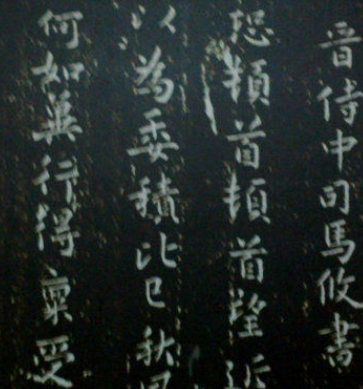 晋侍中司馬攸書
恐頓首頓首望近
以為委積比已秋
何如冀行得稟受